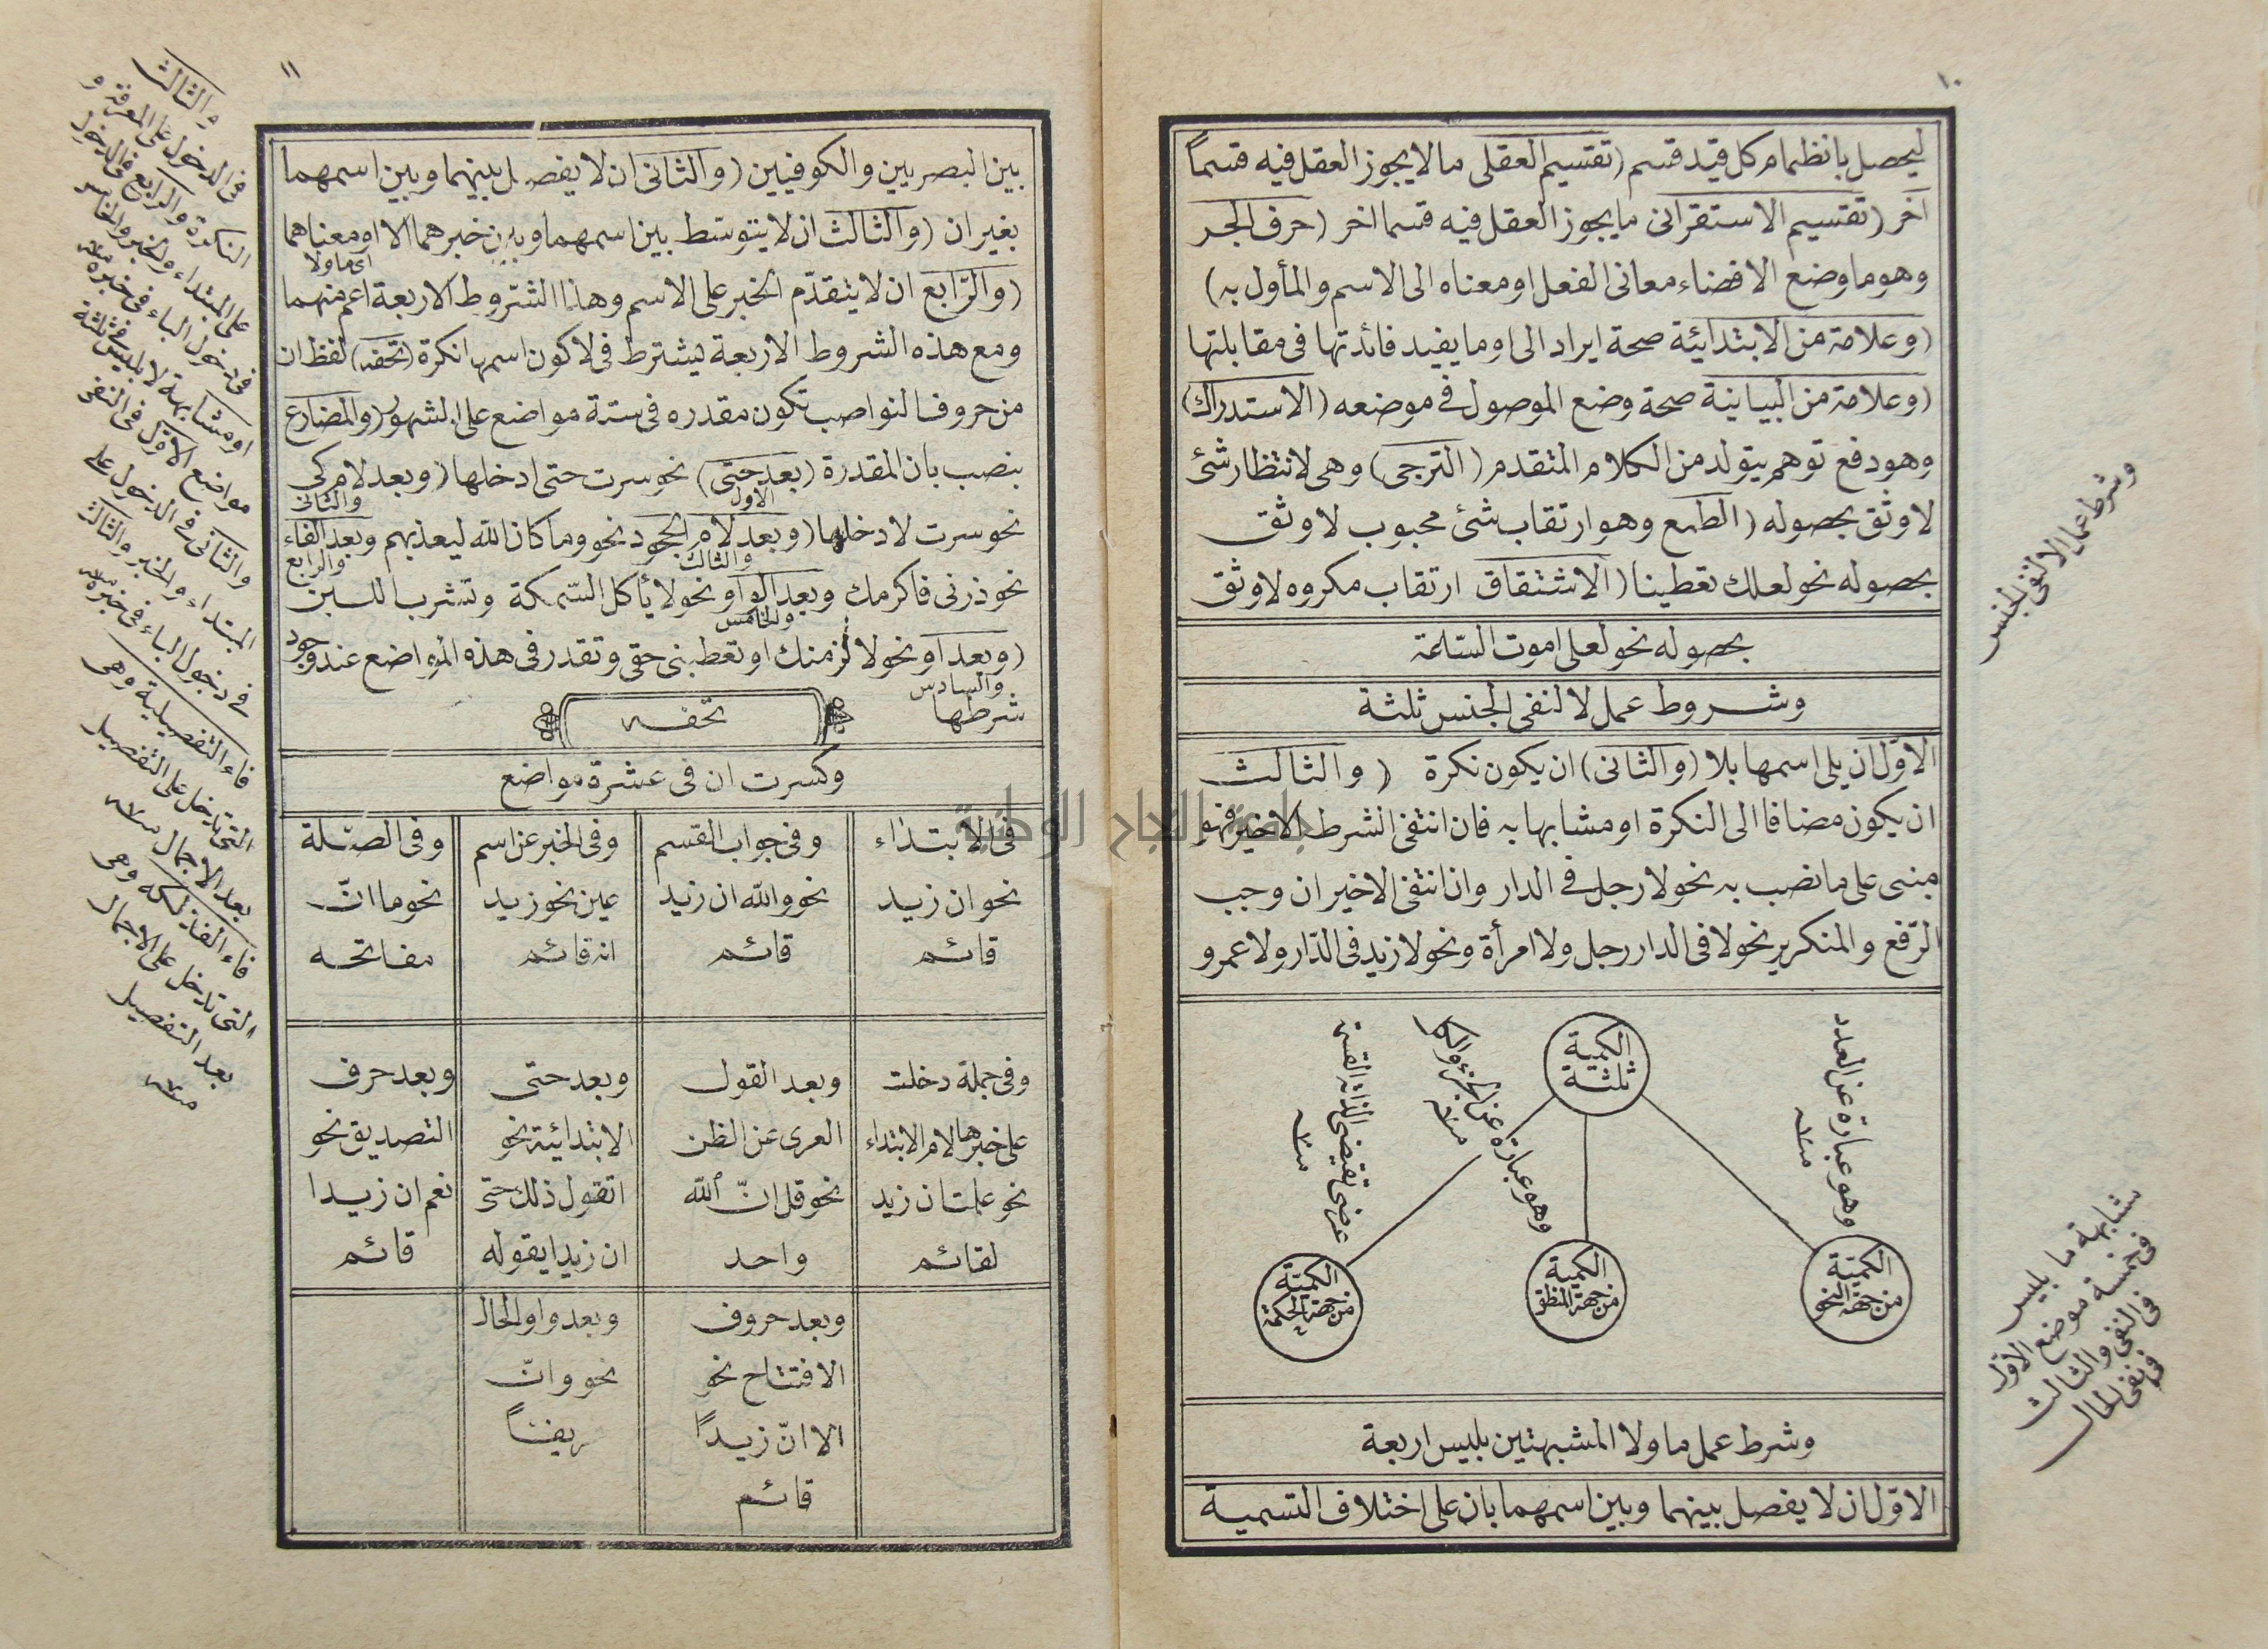 ١٠
ليحصل بانظمام كل قيد قسم (تقسيم العقلى ما لا يجوز العقل فيه قسماً
آخر (تقسيم الاستقرائى ما يجوز العقل فيه قسما اخر (حرف الجر
وهو ما وضع الافضاء معانى الفعل او معناه الى الاسم والمأول به)
(وعلامة من الابتدائية صحة ايراد الى او ما يفيد فائدتها فى مقابلتها
(وعلامة من البيانية صحة وضع الموصول فى موضعه (الاستدراك)
وهو دفع توهم يتولد من الكلام المتقدم (الترجى) وهى لانتظار شئ
لا وثق بحصوله (الطمع وهو ارتقاب شئ محبوب لا وثق
بحصوله نحو لعلك تعطينا (الاشتقاق ارتقاب مكروه لا وثق
بحصوله نحو لعلى اموت الساعة
وشروط عمل لا لنفى الجنس ثلثة
الاوّل ان يلى اسمها بلا (والثانى) ان يكون نكرة (والثالث
ان يكون مضافا الى النكرة او مشابها به فان انتفى الشرط الاخير فهو
مبنى على ما نصب به نحو لا رجل فى الدار وان انتفى الاخيران وجب
الرّفع والتكرير نحو لا فى الدار رجل ولا امرأة ونحو لا زيد فى الدّار ولا عمرو
الكمية
ثلثة
وهو عبارة عن العدد
منه
وهو عبارة عن الجزء والكل
منه
عرض يقتضى لذاته القسمة
منه
الكميّة
من جهة النحو
الكميّة
من جهة المنطق
الكميّة
من جهة الحكمة
وشرط عمل ما ولا المشبهتين بليس اربعة
الاوّل ان لا يفصل بينهما وبين اسمهما بان على اختلاف التسمية
وشرط عمل لا لنفى الجنس
مشابهة ما بليس
فى خمسة موضع الاوّل
فى النفى والثالث
فى نفى الحال
١١
بين البصريين والكوفيين (والثانى ان لا يفصل بينهما وبين اسمهما
بغير ان (والثالث ان لا يتوسّط بين اسمهما وبين خبرهما الا او معناهما
اى ما ولا
(والرّابع ان لا يتقدّم الخبر على الاسم وهذا الشّروط الاربعة اعم منهما
ومع هذه الشروط الاربعة يشترط فى لا كون اسمها نكرة (تحفه) لفظ ان
من حروف النواصب تكون مقدره فى ستة مواضع على المشهور (والمضارع
ينصب بان المقدرة (بعد حتى) نحو سرت حتى ادخلها (وبعد لام كى
الاول
والثانى
نحو سرت لادخلها (وبعد لام الجحود نحو وما كان الله ليعذبهم وبعد الفاء
والثالث
والرابع
نحو ذرنى فاكرمك وبعد الواو نحو لا يأكل السّمكة وتشرب اللبن
والخامس
(وبعد او نحو لالزمنك او تعطينى حقى وتقدر فى هذه المواضع عند وجود
والسادس
شرطها
تحفه
وكسرت ان فى عشرة مواضع
فى الابتداء
نحو ان زيد
قائم
وفى جواب القسم
نحو والله ان زيد
قائم
وفى الخبر عن اسم
عين نحو زيد
انه قائم
وفى الصّلة
نحو ما انّ
مفاتحه
وفى جملة دخلت
على خبرها لام الابتداء
نحو علمت ان زيد
لقائم
وبعد القول
العرى عن الظن
نحو قل انّ الله
واحد
وبعد حتى
الابتدائية نحو
اتقول ذلك حتى
ان زيدا يقوله
وبعد حرف
التصديق نحو
نعم ان زيدا
قائم
وبعد حروف
الافتتاح نحو
الا انّ زيداً
قائم
وبعد واو الحال
نحو وانّ
فريقاً
والثالث
فى الدخول على المعرفة و
النكرة والرابع فى الدخول
على المبتداء والخبر والخامس
فى دخول الباء فى خبره منه
او مشابهة لا بليس فى ثلثة
مواضع الاوّل فى النفى
والثانى فى الدخول على
المبتداء والخبر والثالث
فى دخول الباء فى خبره منه
فاء التفصيلية وهى
التى تدخل على التفصيل
بعد الاجمال منه
فاء الفذلكه وهى
التى تدخل على الاجمال
بعد التفصيل
منه
جامعة النجاح الوطنية